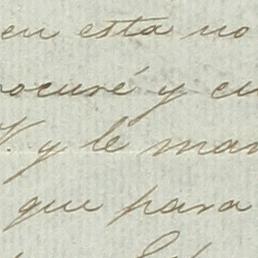 en esta no
ocuré y cu
V. y le man
que para